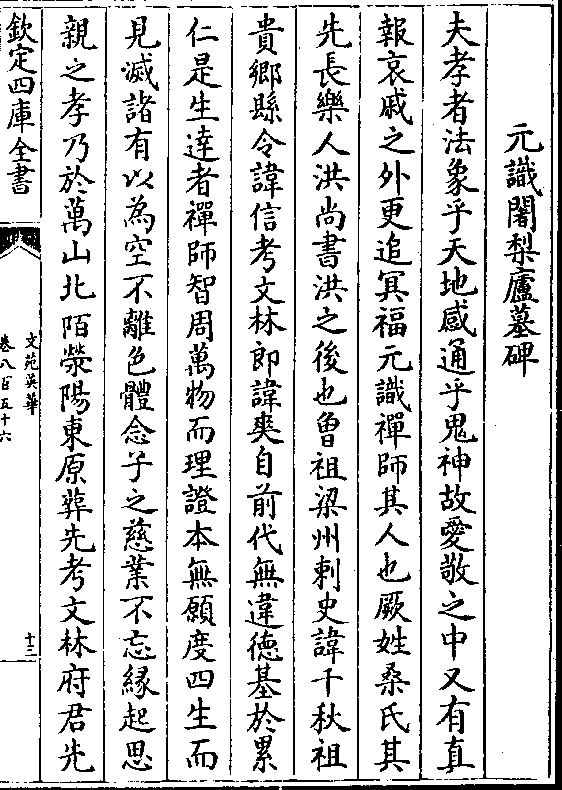 元識闍梨廬墓碑
夫孝者法象乎天地感通乎鬼神故愛敬之中又有真
報哀戚之外更追冥福元識禪師其人也厥姓桑氏其
先長樂人洪尚書洪之後也曾祖梁州刺史諱千秋祖
貴鄉縣令諱信考文林郎諱爽自前代無違德基於累
仁是生達者禪師智周萬物而理證本無願度四生而
見滅諸有以為空不離色體念子之慈業不忘緣起思
親之孝乃於萬山北陌滎陽東原葬先考文林府君先
欽定四庫全書
文苑英華
卷八百五十六
十三